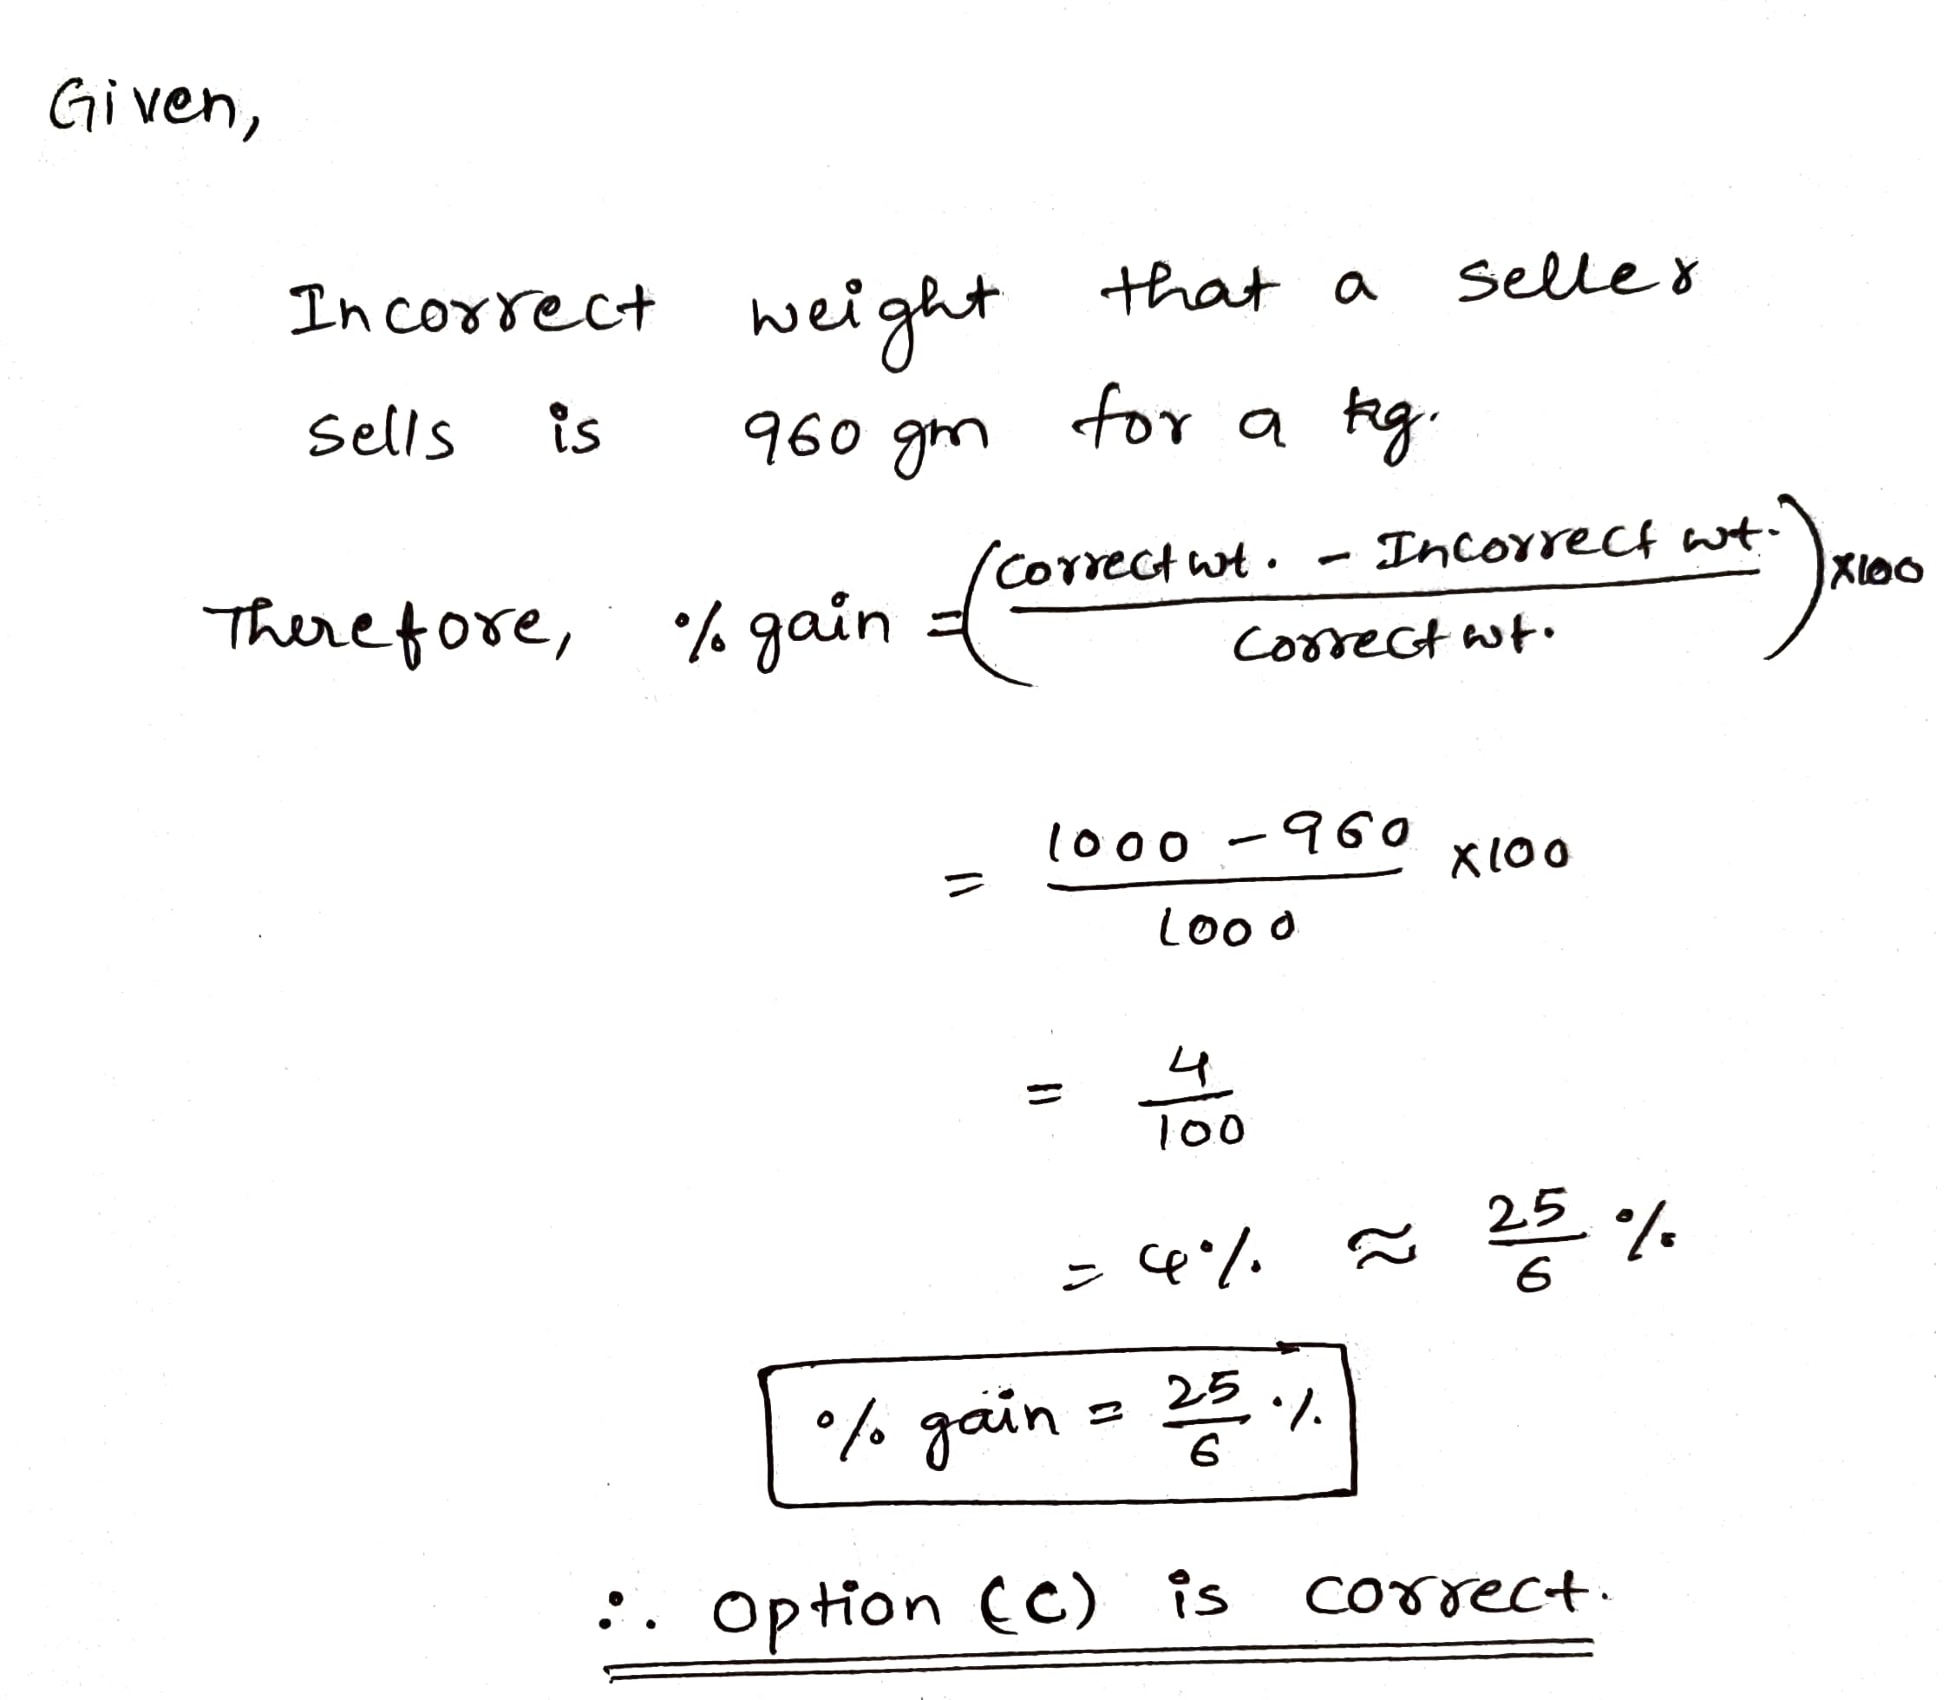 Given,
Incorrect weight that a seller
sells is 960 gm for a kg.
Therefore, % gain = (Correct wt. - Incorrect wt. / Correct wt.) x100
= 1000 - 960 / 1000 x100
= 4 / 100
= 4% ≈ 25/6 %
% gain = 25/6 %
∴ Option (C) is correct.